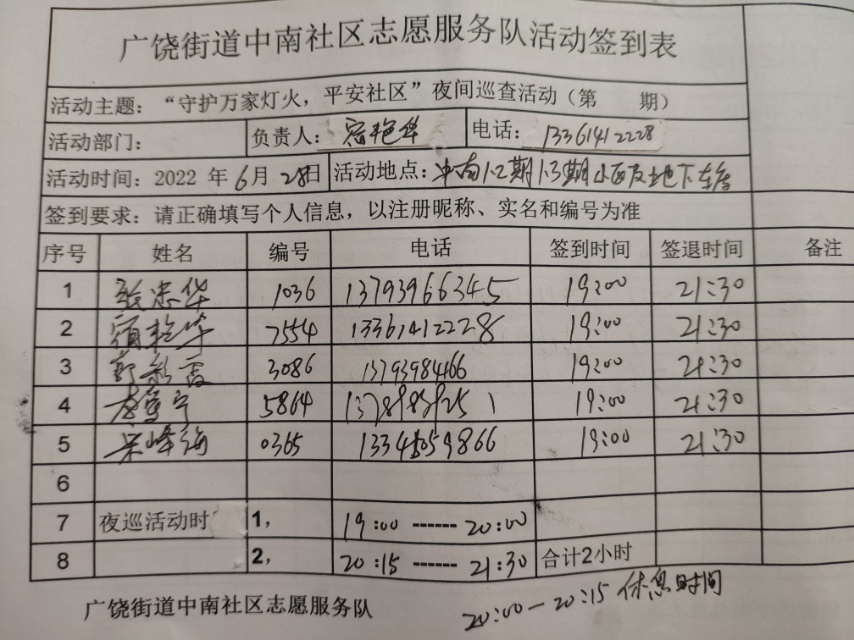 广饶街道中南社区志愿服务队活动签到表
活动主题：“守护万家灯火，平安社区”夜间巡查活动（第 期）
活动部门： 负责人：宿艳华 电话：13361412228
活动时间：2022 年 6 月 28 日 活动地点：中南1-2期1-3期小区及地下车库
签到要求：请正确填写个人信息，以注册昵称、实名和编号为准
序号 姓名 编号 电话 签到时间 签退时间 备注
1 张忠华 1036 13793966345 19:00 21:30
2 宿艳华 7554 13361412228 19:00 21:30
3 3086 13793984166 19:00 21:30
4 5864 19:00 21:30
5 峰海 0365 19:00 21:30
6
7 夜巡活动时 1， 19:00 ------ 20:00
8 2， 20:15 ------ 21:30 合计2小时
广饶街道中南社区志愿服务队
20:00—20:15 休息时间